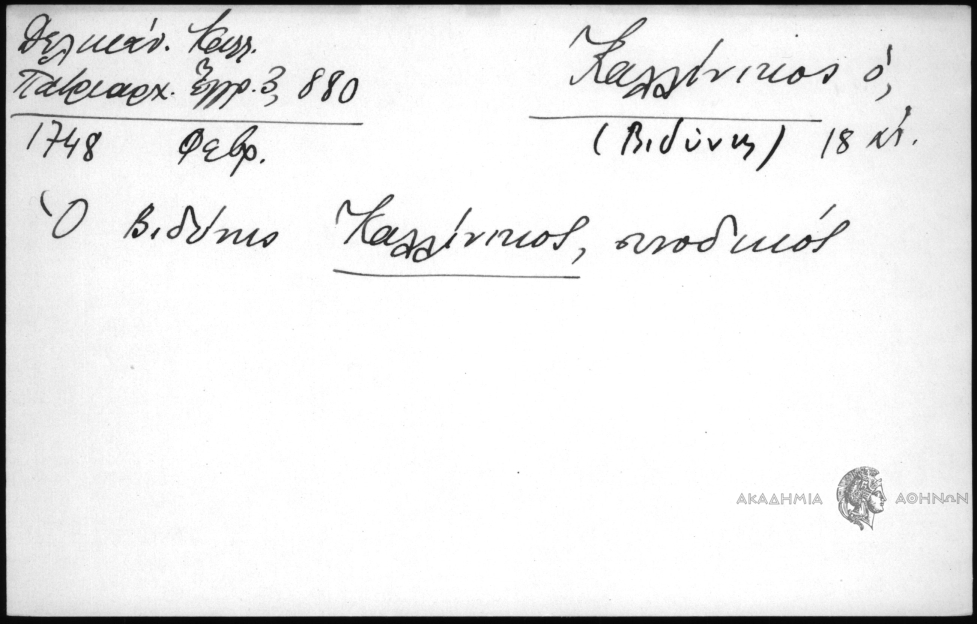 Δελικάν. Καλλ.
Πατριαρχ. Ἔγγρ. 3, 880
1748 Φεβρ.
Καλλίνικος ὁ,
(Βιδύνης) 18 αἰ.
Ὁ Βιδύνης Καλλίνικος, συνοδικός
ΑΚΑΔΗΜΙΑ ΑΘΗΝΩΝ